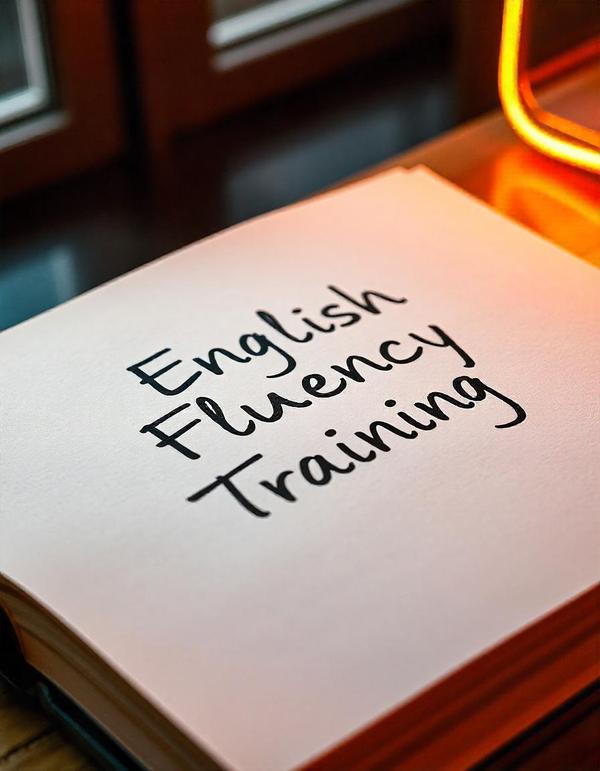 English
Fluency
Training